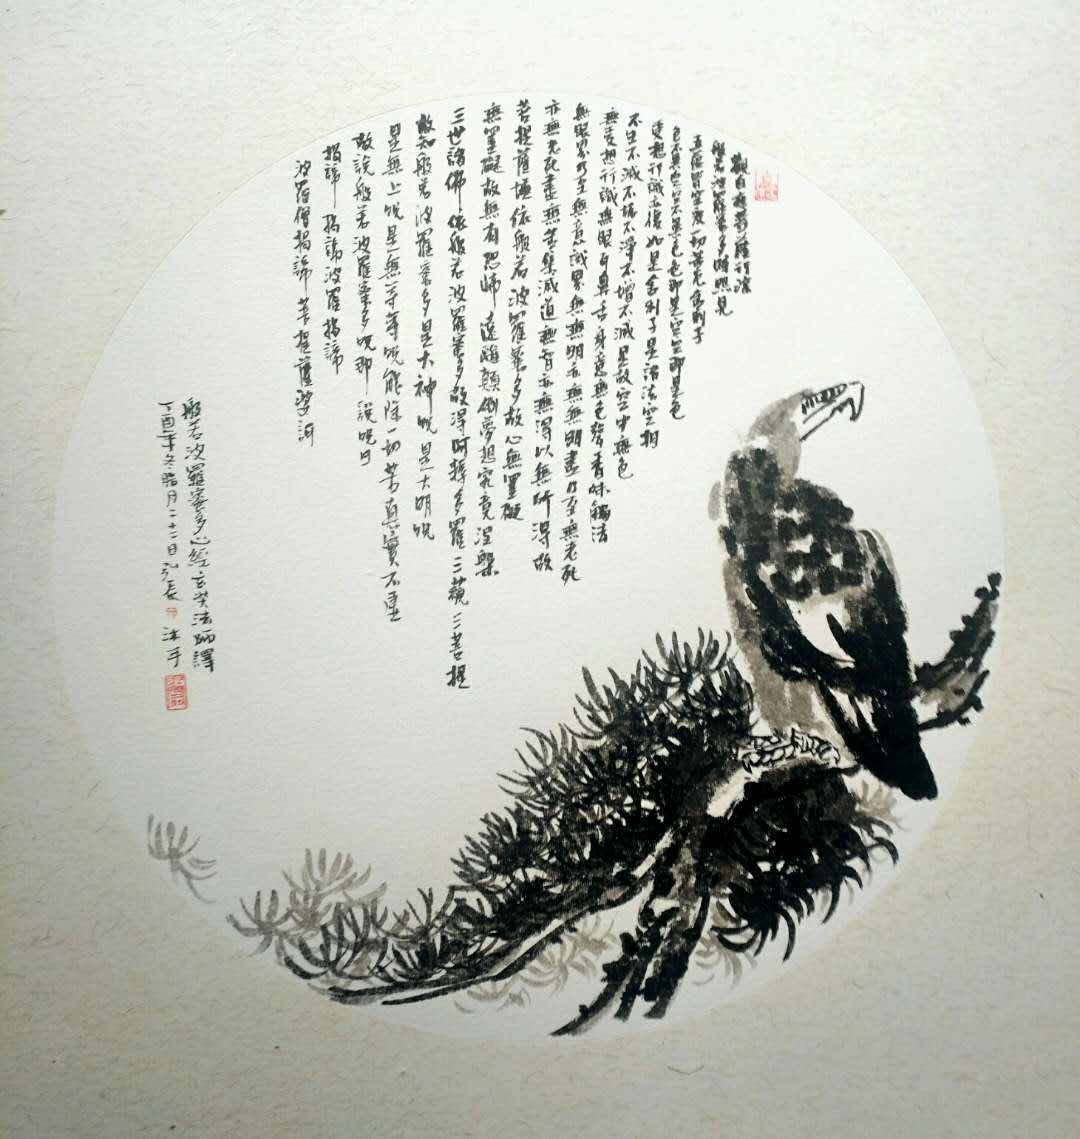 觀自在菩薩行深
般若波羅蜜多時照見
五蘊皆空度一切苦厄舍利子
色不異空空不異色色即是空空即是色
受想行識亦復如是舍利子是諸法空相
不生不滅不垢不淨不增不減是故空中無色
無受想行識無眼耳鼻舌身意無色聲香味觸法
無眼界乃至無意識界無無明亦無無明盡乃至無老死
亦無老死盡無苦集滅道無智亦無得以無所得故
菩提薩埵依般若波羅蜜多故心無罣礙
無罣礙故無有恐怖遠離顛倒夢想究竟涅槃
三世諸佛依般若波羅蜜多故得阿耨多羅三藐三菩提
故知般若波羅蜜多是大神呪是大明呪
是無上呪是無等等呪能除一切苦真實不虛
故說般若波羅蜜多呪即說呪曰
揭諦揭諦波羅揭諦
波羅僧揭諦菩提薩婆訶
般若波羅蜜多心經玄奘法師譯
丁酉年冬臘月二十二日 沐手